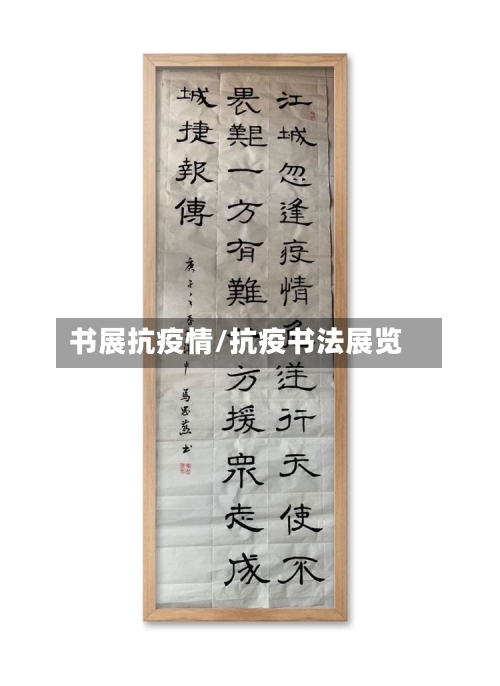 江城忽逢疫情逆行天使不
畏艱一方有難方援眾志成
城捷報傳
庚子年春
书展抗疫情/抗疫书法展览